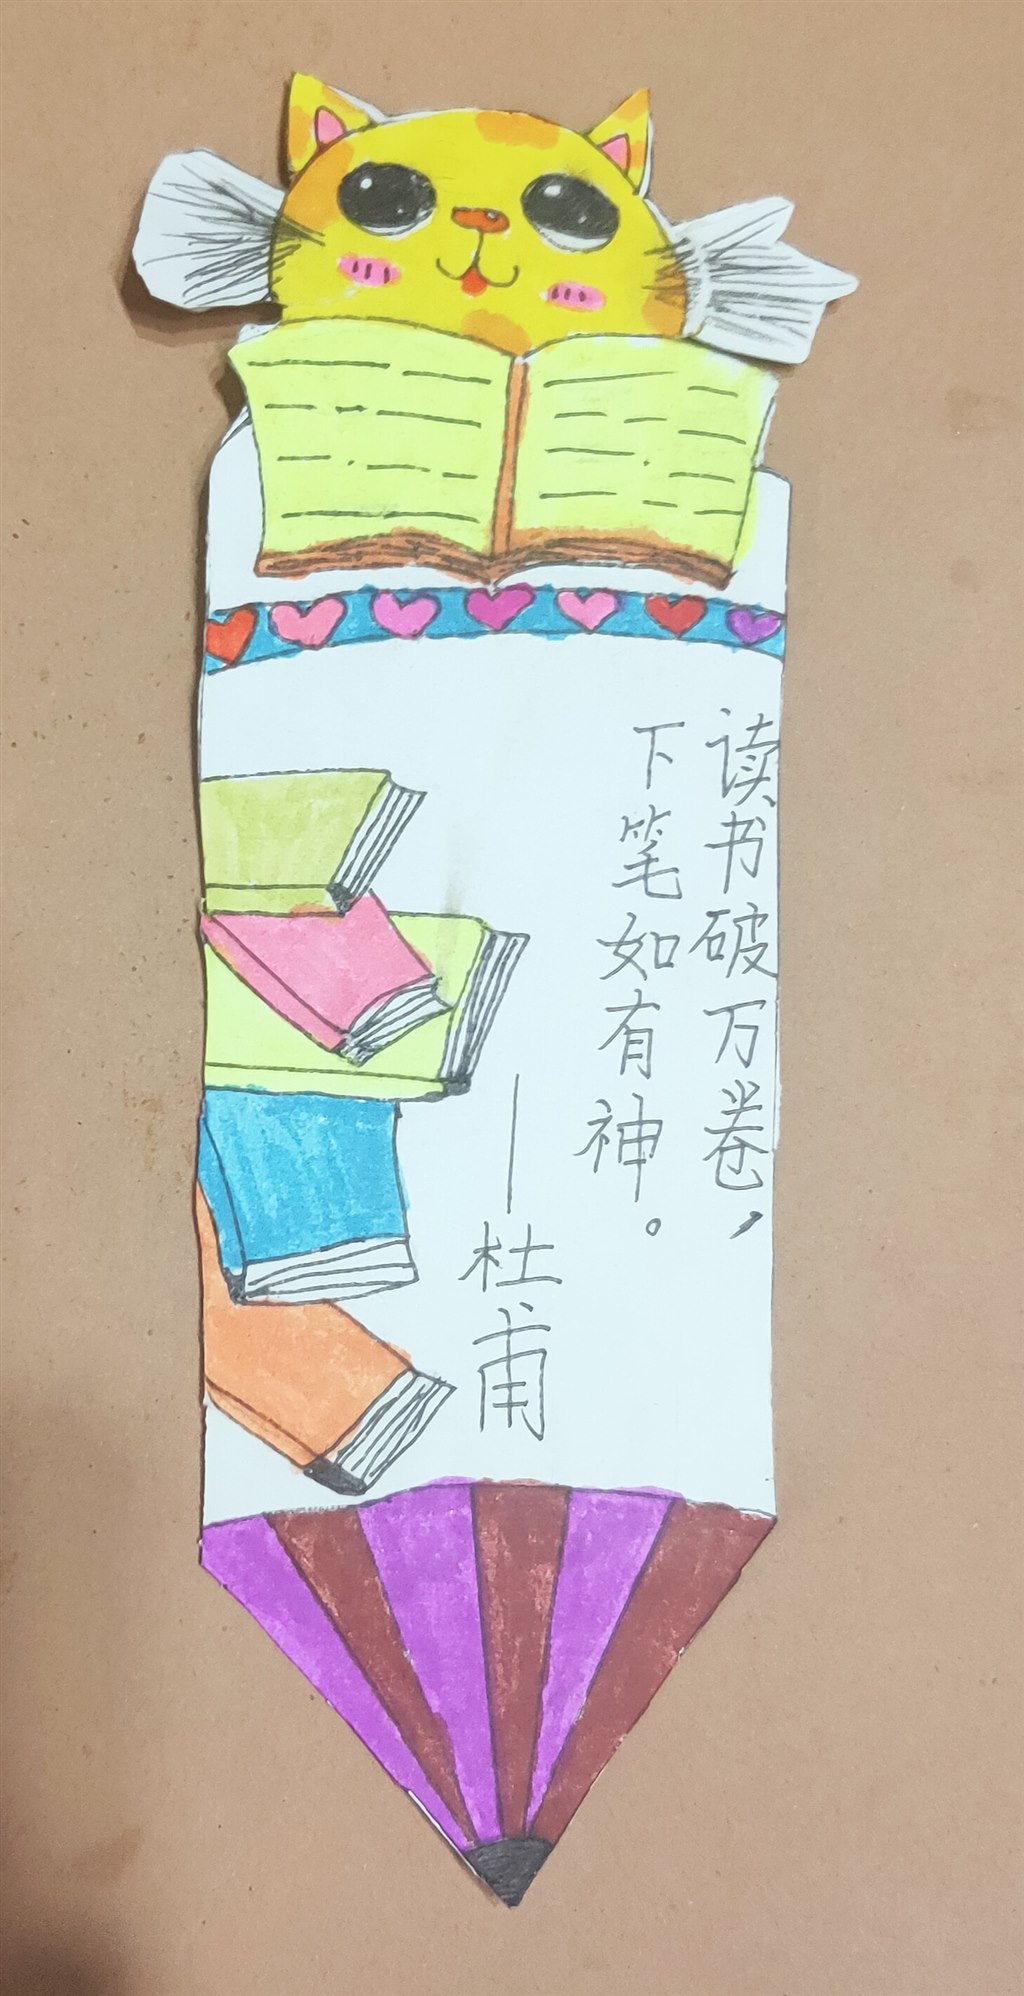 读书破万卷，
下笔如有神。
——杜甫